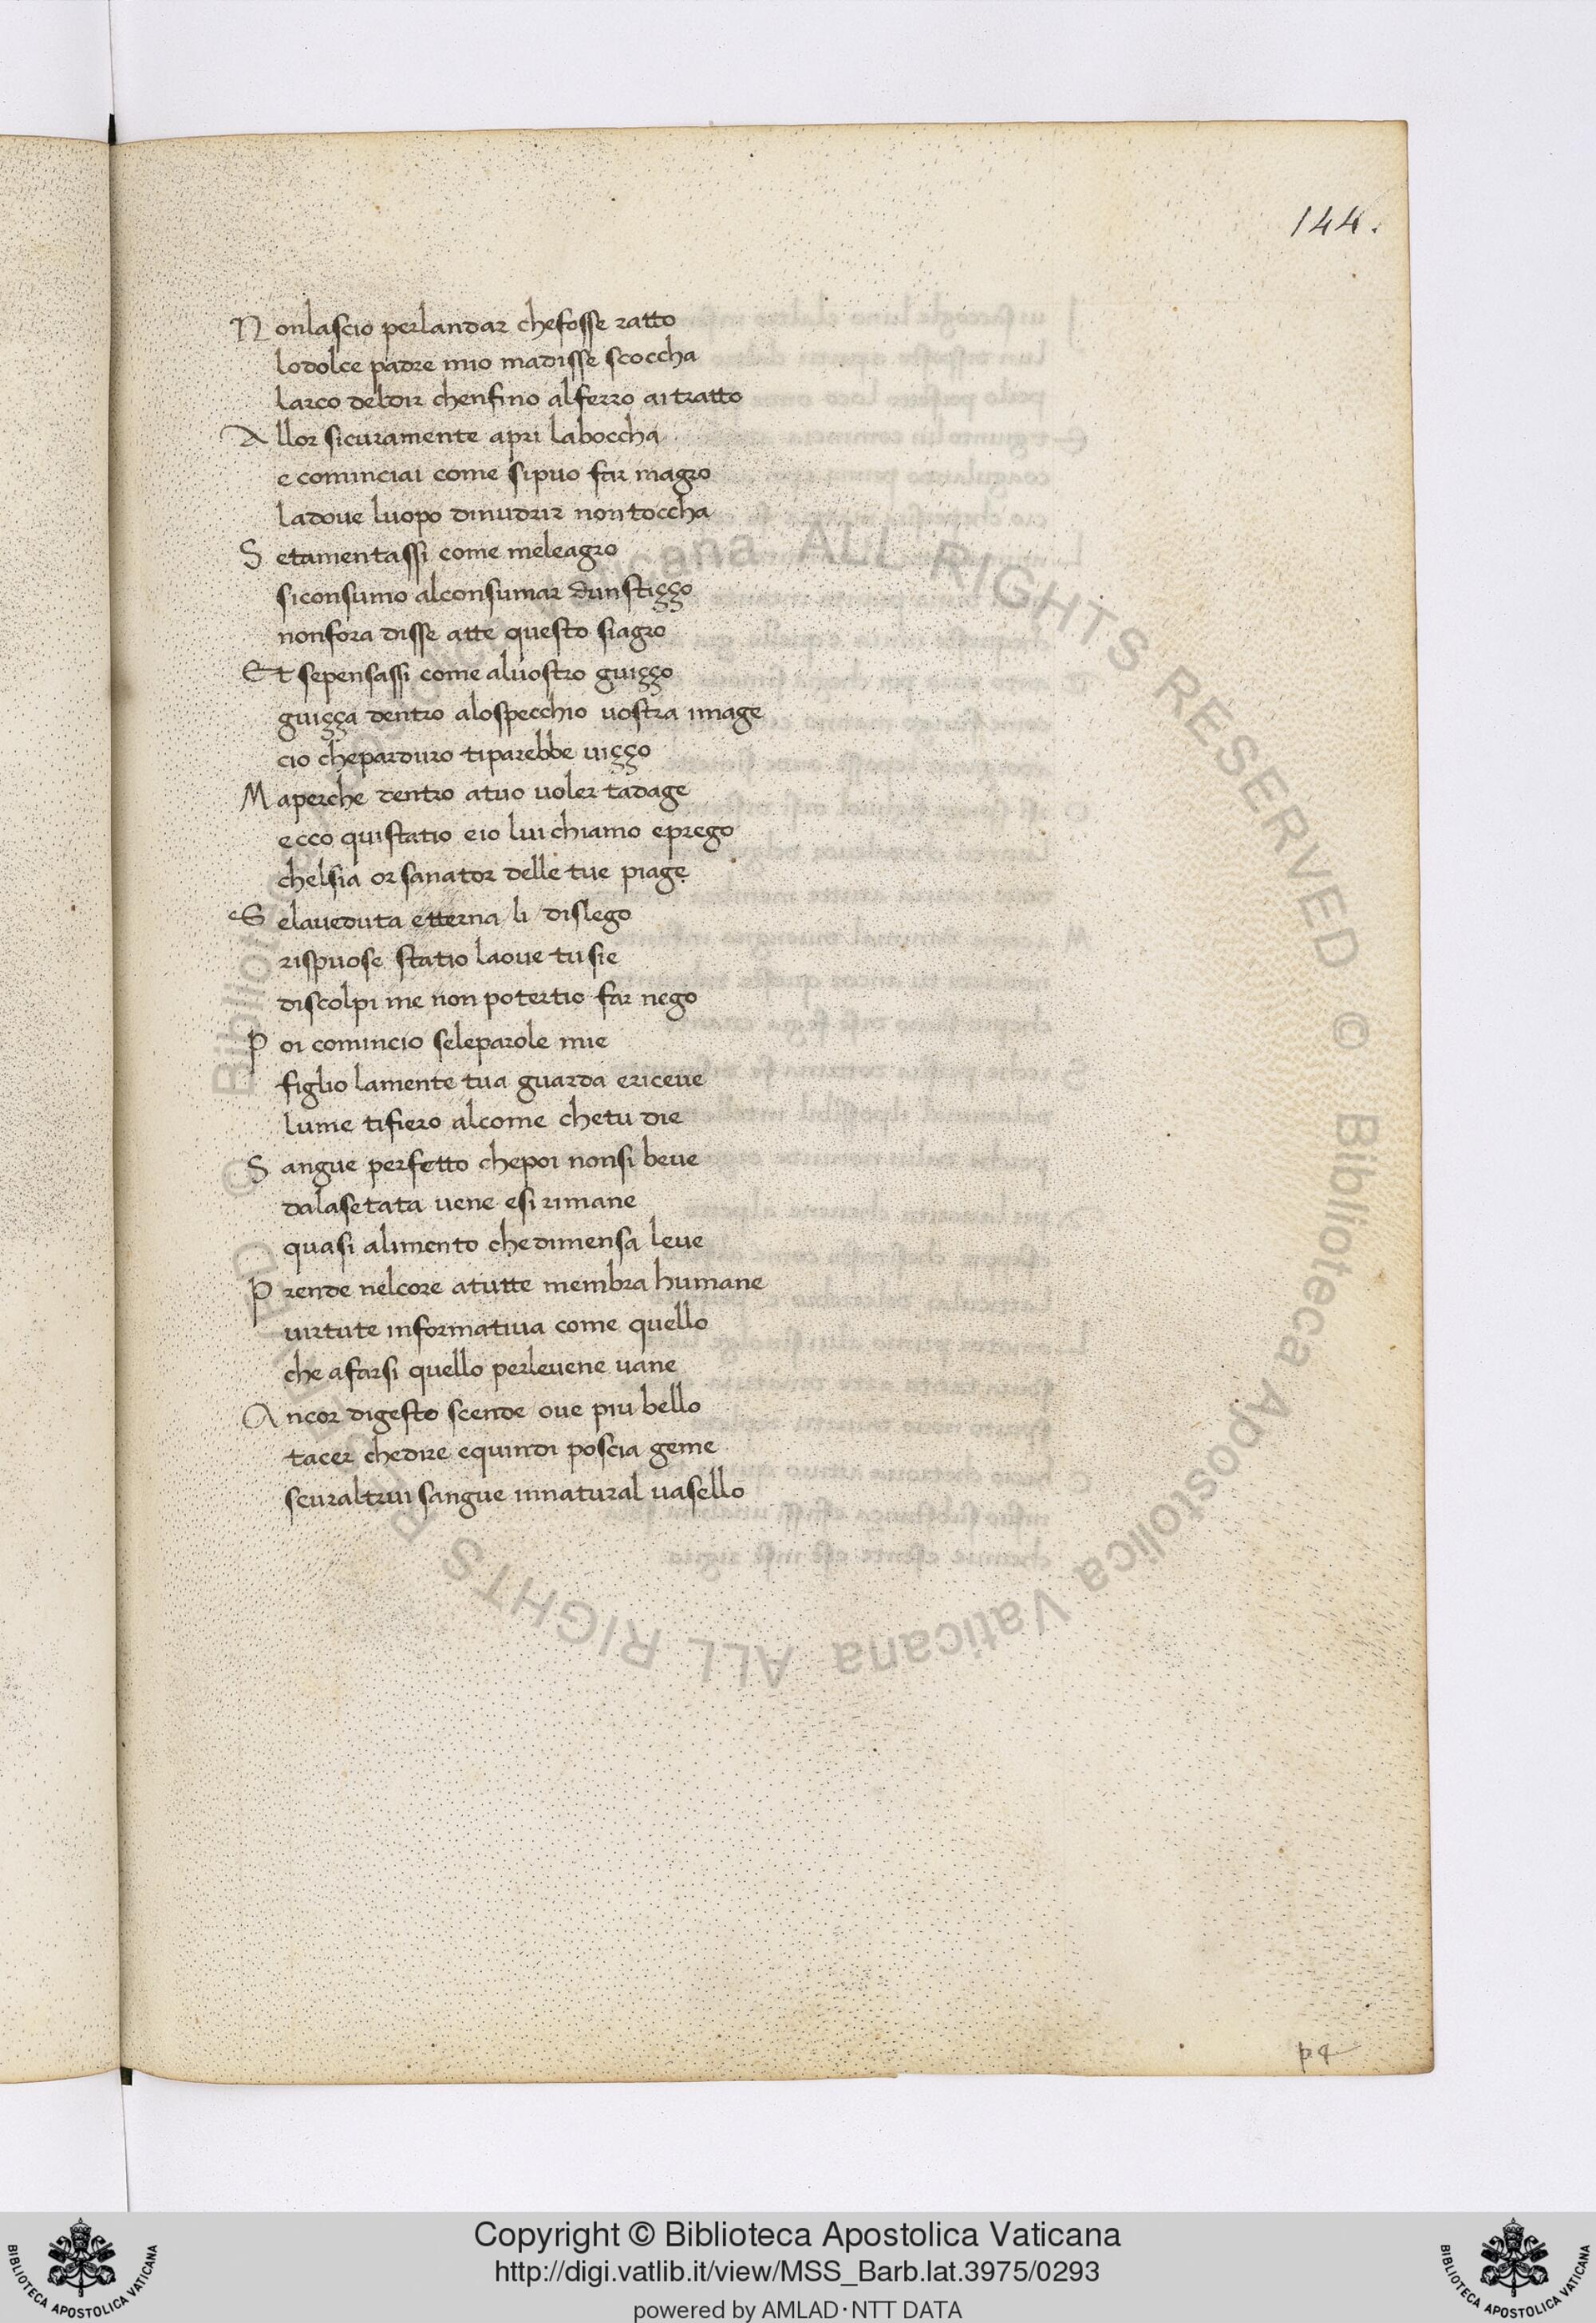 144.
N onlascio perlandar chefosse ratto
lodolce padre mio madisse scoccha
larco deldir chenfino alferro ai tratto
A llor sicuramente apri laboccha
e cominciai come sipuo far magro
ladove luopo dinudrir non toccha
S etamentassi come meleagro
siconsumo alconsumar dunstiççо
nonfora disse atte questo siagro
Et sepensassi come alvostro guiçço
guiçça dentro alospecchio vostra image
cio chepar duro tiparebbe viçço
M aperche dentro atuo voler tadage
ecco quistatio eio lui chiamo eprego
chelsia or sanator delle tue piage
S elaveduta etterna li dislego
rispuose statio laove tu sie
discolpi me non potertio far nego
P oi comincio seleparole mie
figlio lamente tua guarda ericeve
lume tifiero alcome chetu die
S angue perfetto chepoi nonsi beve
dalasetata vene esi rimane
quasi alimento chedimensa leve
P rende nelcore atutte membra humane
virtute informativa come quello
che afarsi quello perlevene vane
A ncor digesto scende ove piu bello
tacer chedire equindi poscia geme
sevraltrui sangue innatural vasello
© Biblioteca Apostolica Vaticana ALL RIGHTS RESERVED © Biblioteca Apostolica Vaticana ALL RIGHTS RESERVED
BIBLIOTECA APOSTOLICA VATICANA
Copyright © Biblioteca Apostolica Vaticana
http://digi.vatlib.it/view/MSS_Barb.lat.3975/0293
powered by AMLAD·NTT DATA
BIBLIOTECA APOSTOLICA VATICANA